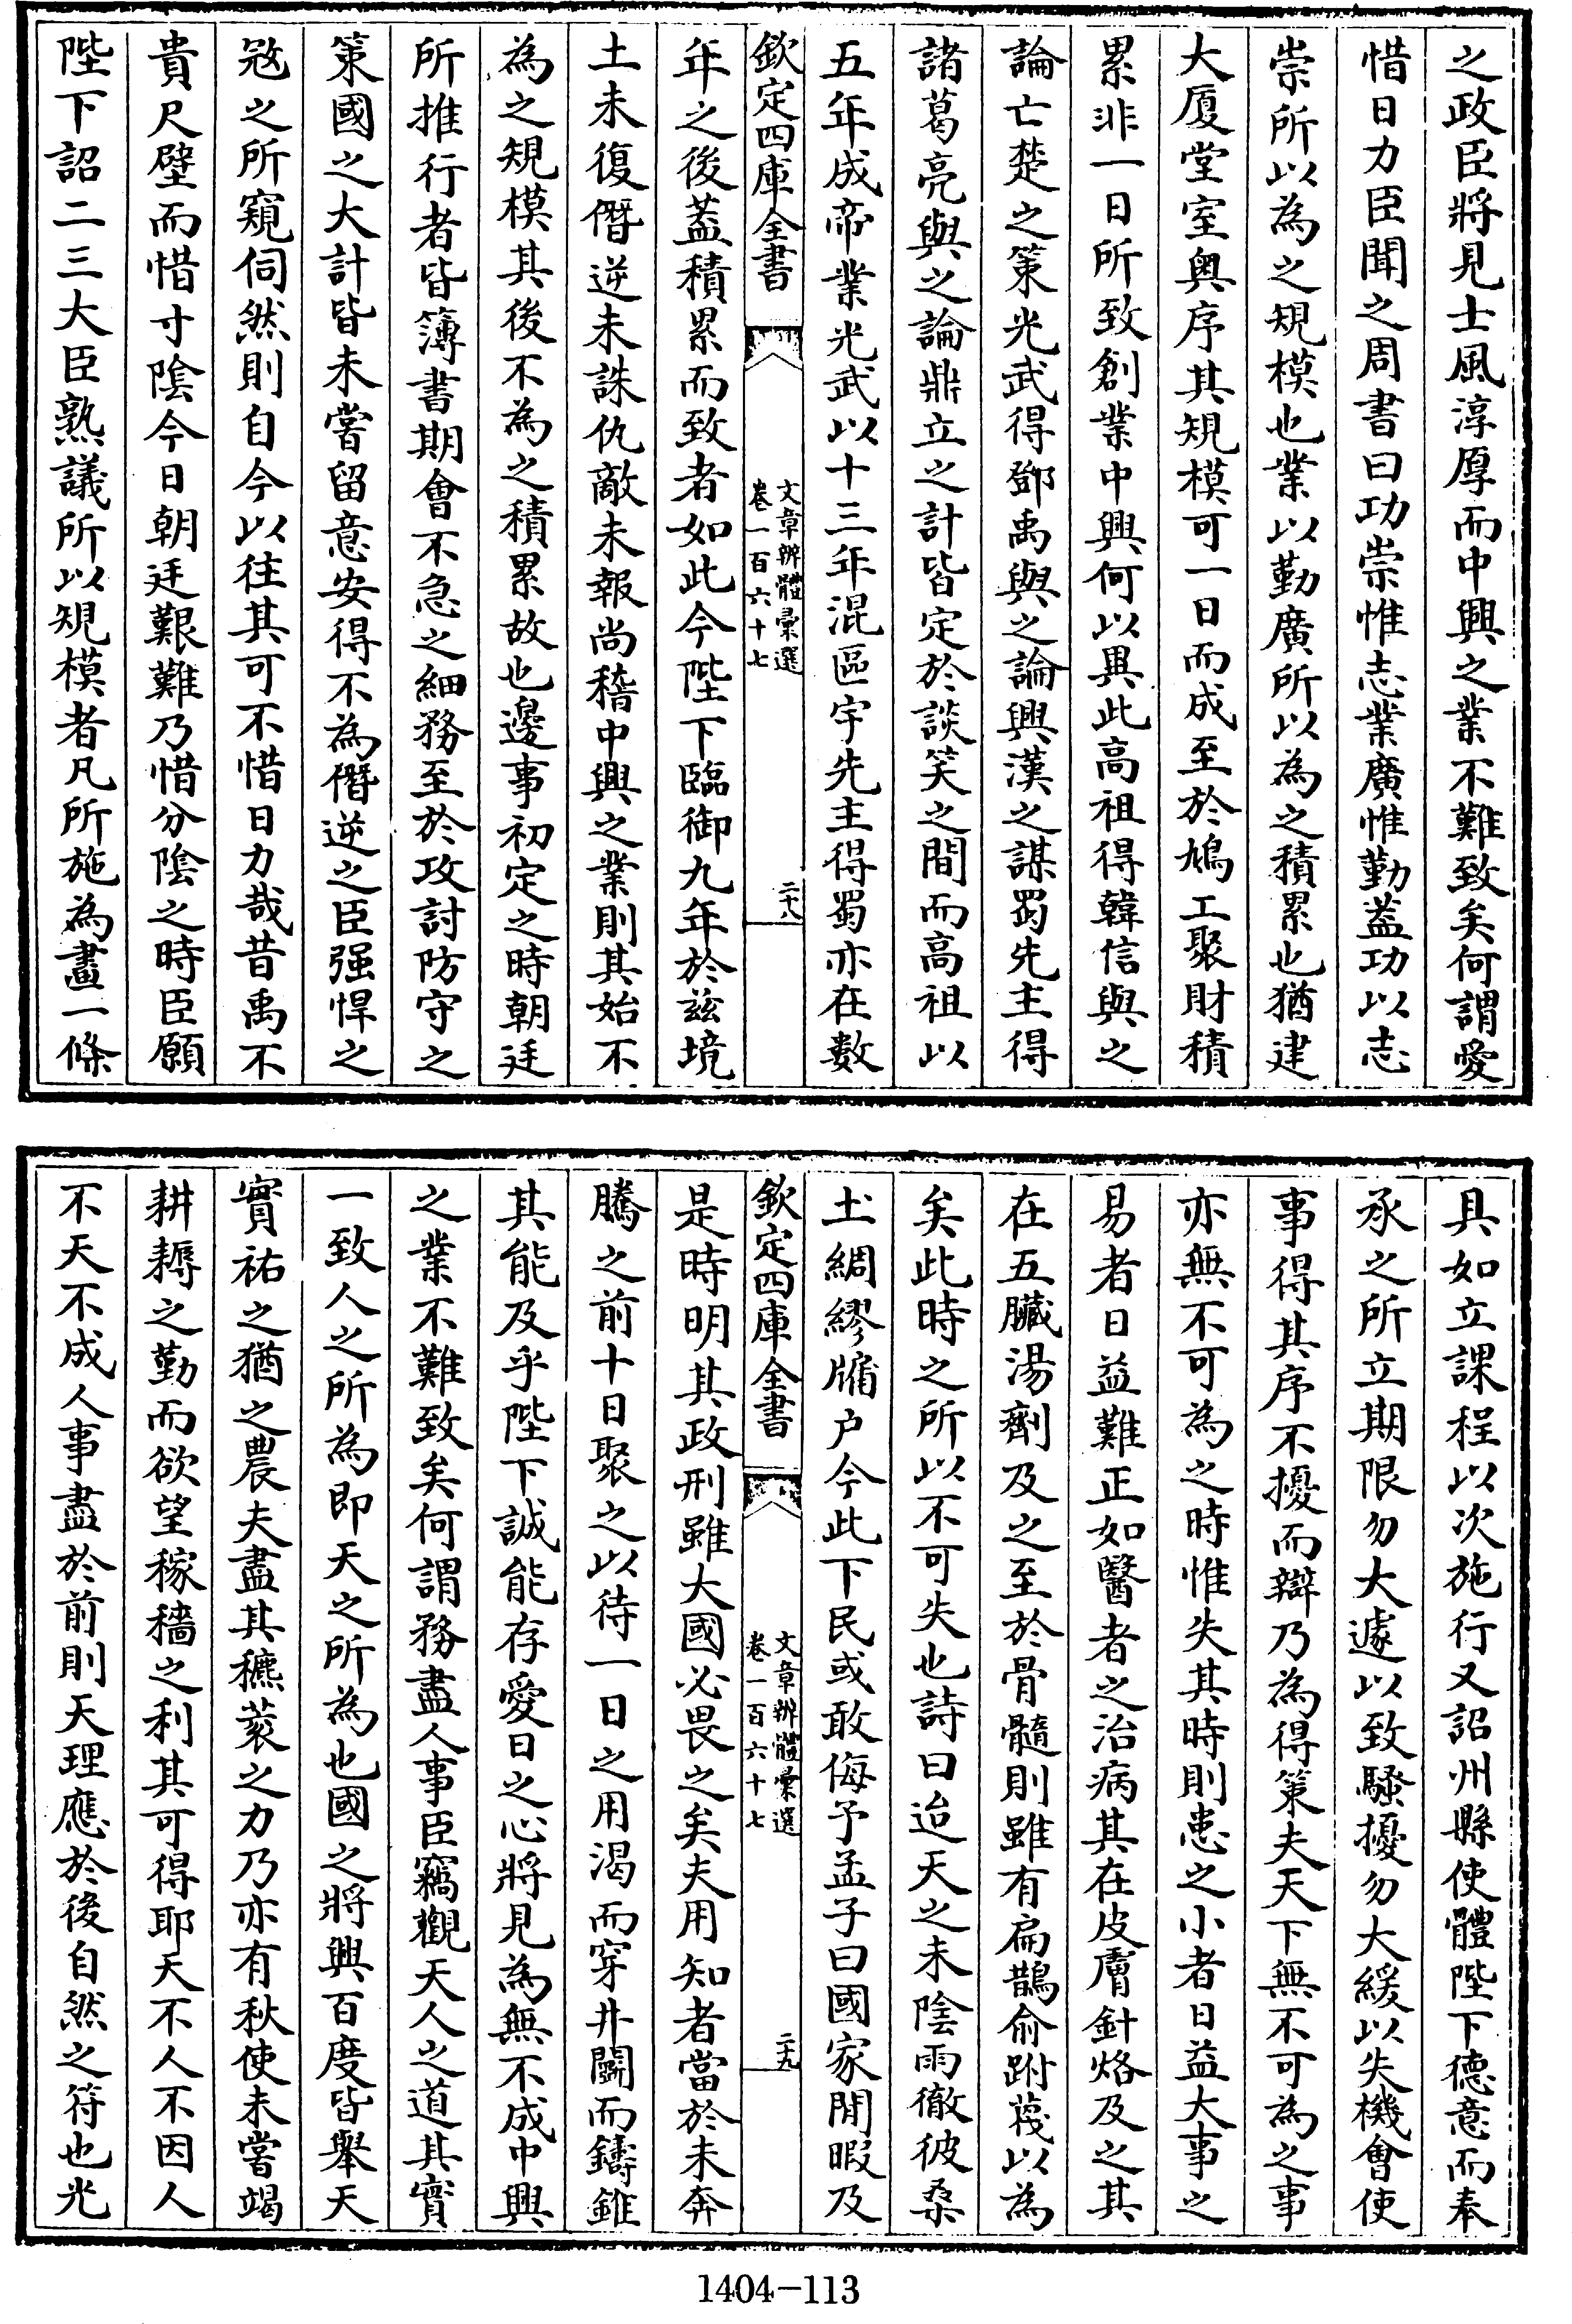 之政臣將見士風淳厚而中興之業不難致矣何謂愛
惜日力臣聞之周書曰功崇惟志業廣惟勤蓋功以志
崇所以為之規模也業以勤廣所以為之積累也猶建
大厦堂室奥序其規模可一日而成至於鳩工聚財積
累非一日所致創業中興何以異此高祖得韓信與之
論亡楚之策光武得鄧禹與之論興漢之謀蜀先主得
諸葛亮與之論鼎立之計皆定於談笑之間而高祖以
五年成帝業光武以十三年混區宇先主得蜀亦在數
欽定四庫全書
文章辨體彙選
卷一百六十七
二十八
年之後蓋積累而致者如此今陛下臨御九年於兹境
土未復僭逆未誅仇敵未報尚稽中興之業則其始不
為之規模其後不為之積累故也邊事初定之時朝廷
所推行者皆簿書期會不急之細務至於攻討防守之
策國之大計皆未嘗留意安得不為僭逆之臣强悍之
冦之所窺伺然則自今以往其可不惜日力哉昔禹不
貴尺璧而惜寸陰今日朝廷艱難乃惜分陰之時臣願
陛下詔二三大臣熟議所以規模者凡所施為畫一條
具如立課程以次施行又詔州縣使體陛下德意而奉
承之所立期限勿大遽以致騷擾勿大緩以失機會使
事得其序不擾而辦乃為得策夫天下無不可為之事
亦無不可為之時惟失其時則患之小者日益大事之
易者日益難正如醫者之治病其在皮膚針烙及之其
在五臟湯劑及之至於骨髓則雖有扁鵲俞跗蔑以為
矣此時之所以不可失也詩曰迨天之未陰雨徹彼桑
土綢繆牖户今此下民或敢侮予孟子曰國家閒暇及
欽定四庫全書
文章辨體彙選
卷一百六十七
二十九
是時明其政刑雖大國必畏之矣夫用知者當於未奔
騰之前十日聚之以待一日之用渴而穿井鬬而鑄錐
其能及乎陛下誠能存愛日之心將見為無不成中興
之業不難致矣何謂務盡人事臣竊觀天人之道其實
一致人之所為即天之所為也國之將興百度皆舉天
實祐之猶之農夫盡其穮蓘之力乃亦有秋使未嘗竭
耕耨之勤而欲望稼穡之利其可得耶天不人不因人
不天不成人事盡於前則天理應於後自然之符也光
1404-113